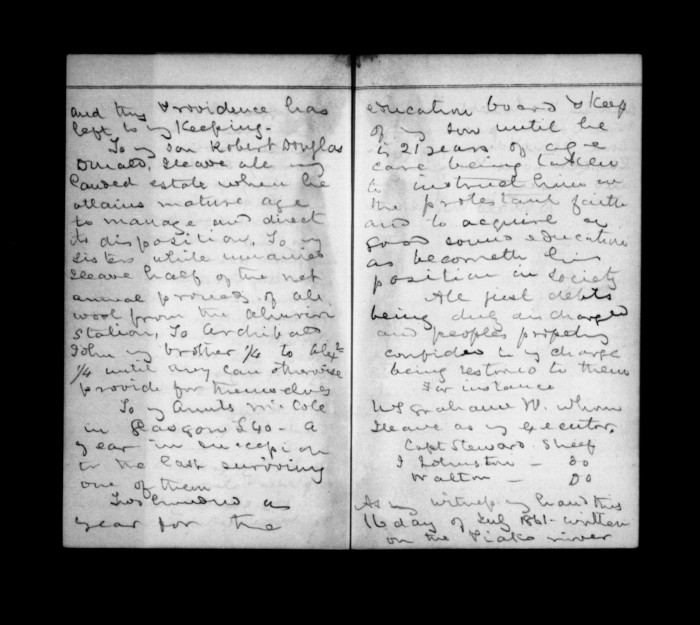 and this Providence has
left to my Keeping -
To my son Robert Douglas
Donald, I leave all my
landed estate when he
attains mature age
to manage and direct
its disposition, To my
sisters while unmarried
I leave half of the net
annual proceeds of all
wool from the Ahuriri
Station, To Archibald
John my brother 1/4 to Alexr
1/4 until they can otherwise
provide for themselves
To my Aunts McCole
in Glasgow £40 - a
year in succession
to the last surviving
one of them
Two hundred a
year for the
education board & Keep
of my son until he
is 21 years of age
care being taken
to instruct him in
the protestant faith
and to acquire a
good sound education
as becometh his
position in Society
All just debts
being duly discharged
and peoples property
confided to my charge
being restored to them
For instance
Graham W. whom
I leave as my executor.
Capt Steward. Sheep
J Johnston - Do
Walton - Do
As my witness my hand this
16 day of July 1861 - written
on the Piako river